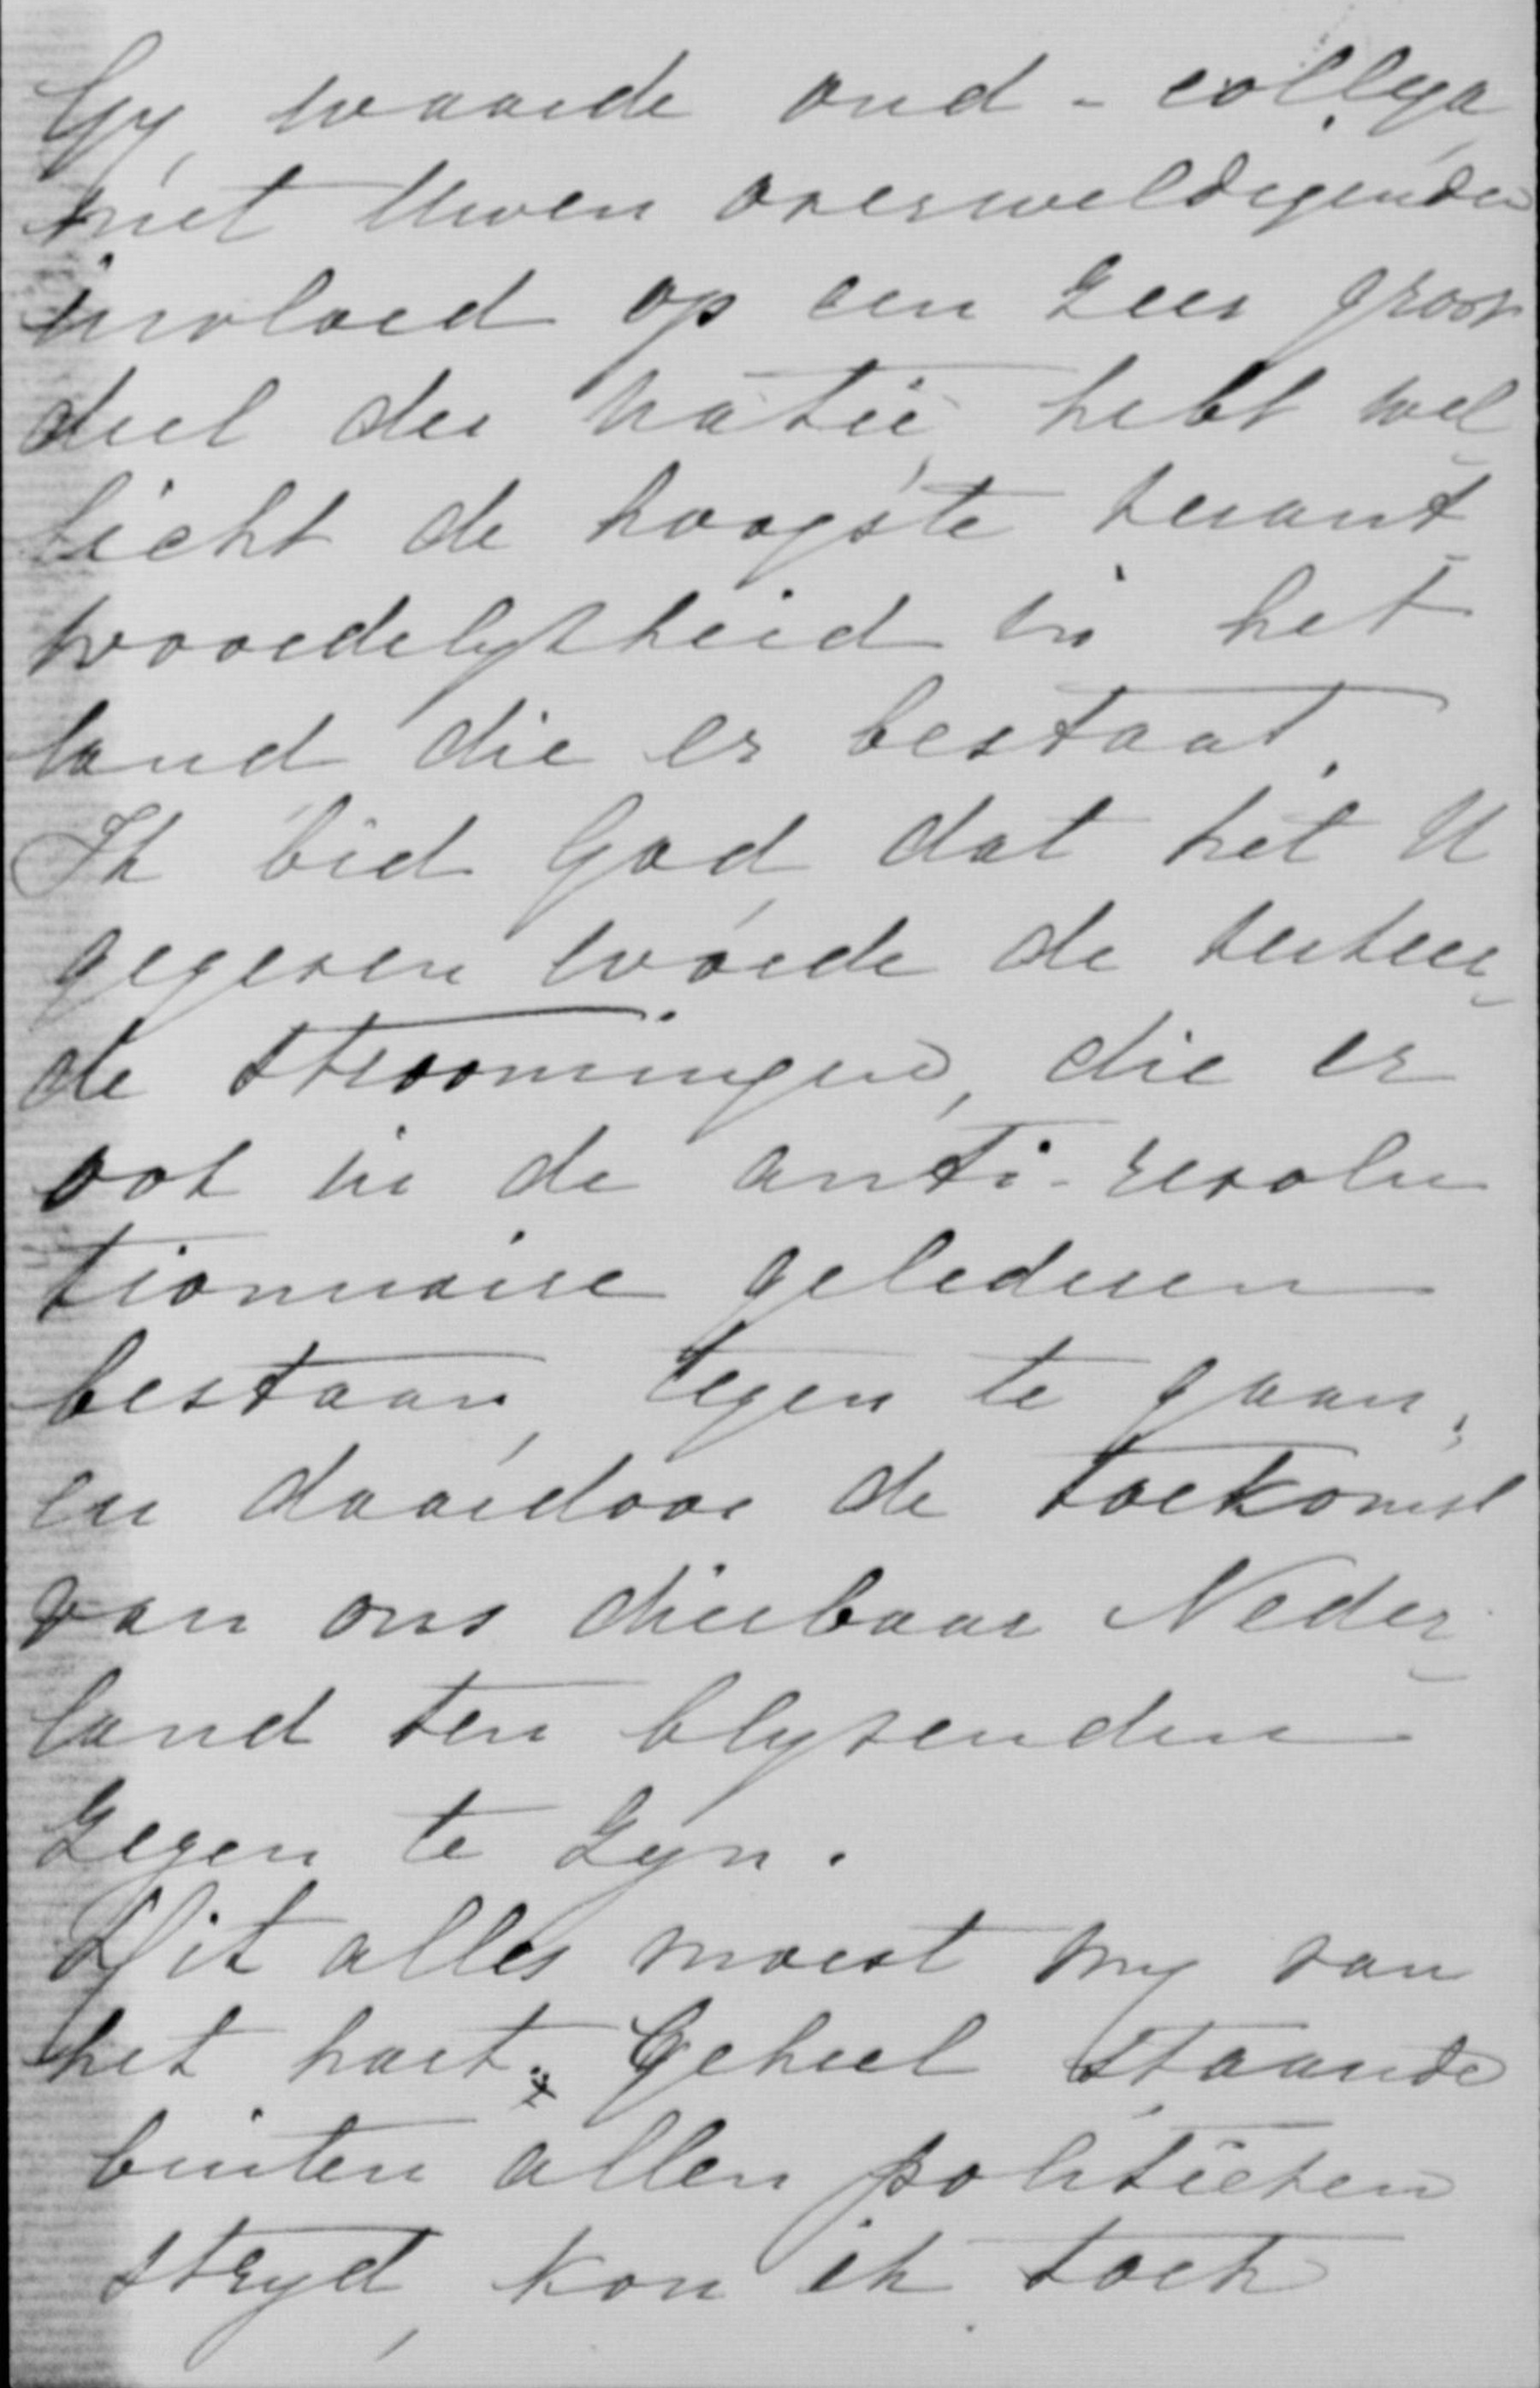 Gy, waarde oud-collega,
met Uwen overweldigenden
invloed op een zeer groot
deel der natie, hebt wel-
licht de hoogste verant-
woordelykheid in het
land die er bestaat.
Ik bid God, dat het U
gegeven worde de verkeer-
de stroomingen, die er
ook in de anti-revolu
tionnaire gelederen
bestaan, tegen te gaan,
en daardoor de toekomst
van ons dierbaar Neder-
land ten blyvenden
zegen te zyn.
Dit alles moest my van
het hart. Geheel staande
buiten allen politieken
stryd, kon ik toch